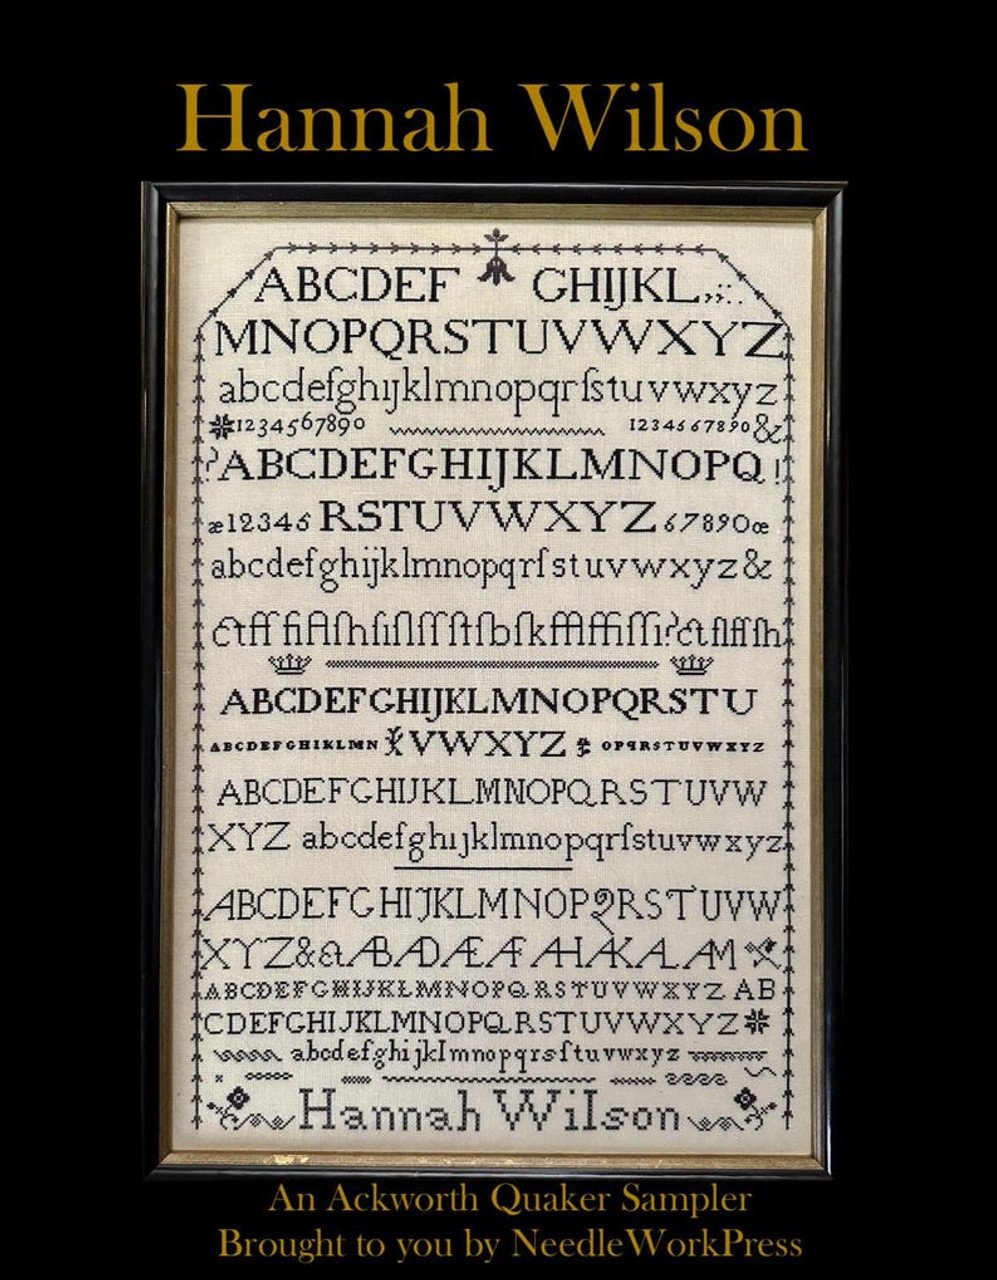 Hannah Wilson
ABCDEF GHIJKL,;:.
MNOPQRSTUVWXYZ
abcdefghijklmnopqrſstuvwxyz
1234567890 1234567890&
?ABCDEFGHIJKLMNOPQ!
æ12345 RSTUVWXYZ 67890œ
abcdefghijklmnopqrſstuvwxyz&
ABCDEFGHIJKLMNOPQRSTU
ABCDEFGHIKLMN VWXYZ OPQRSTUVWXYZ
ABCDEFGHIJKLMNOPQRSTUVW
XYZ abcdefghijklmnopqrſstuvwxyz
ABCDEFGHIJKLMNOPQRSTUVW
XYZ&
ABCDEFGHIJKLMNOPQRSTUVWXYZ AB
CDEFGHIJKLMNOPQRSTUVWXYZ
abcdefghijklmnopqrsſtuvwxyz
Hannah Wilson
An Ackworth Quaker Sampler
Brought to you by NeedleWorkPress